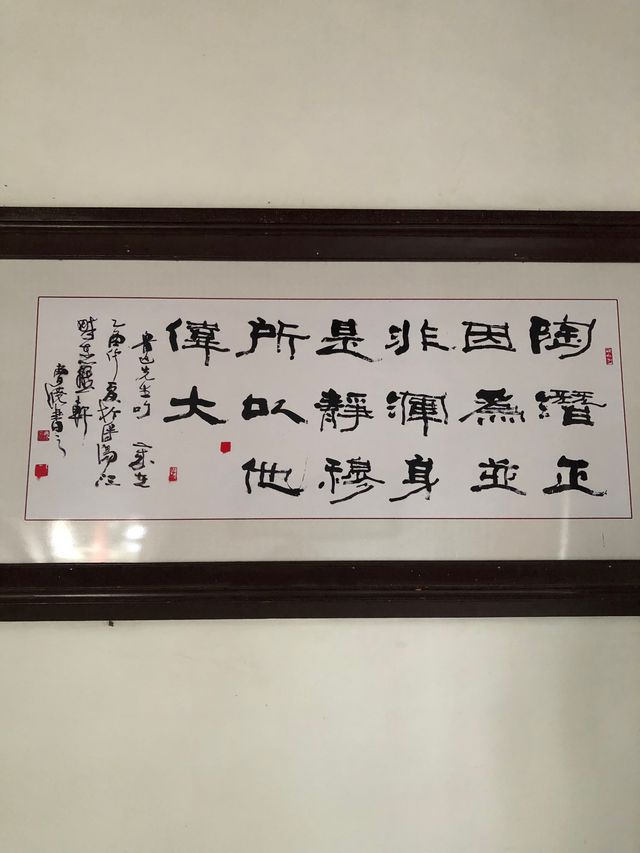 陶潛正
因為並
非渾身
是靜穆
所以他
偉大
魯迅先生句
乙酉仲夏於潯陽江
書之